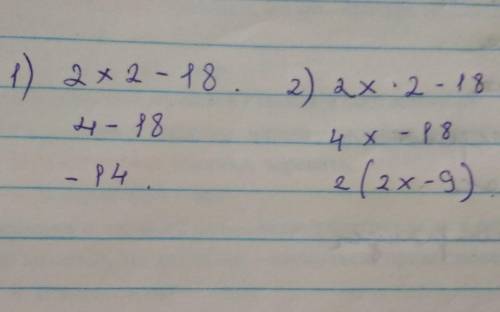 1) 2 × 2 - 18.
4 - 18
- 14.
2) 2x · 2 - 18
4x - 18
2(2x - 9)